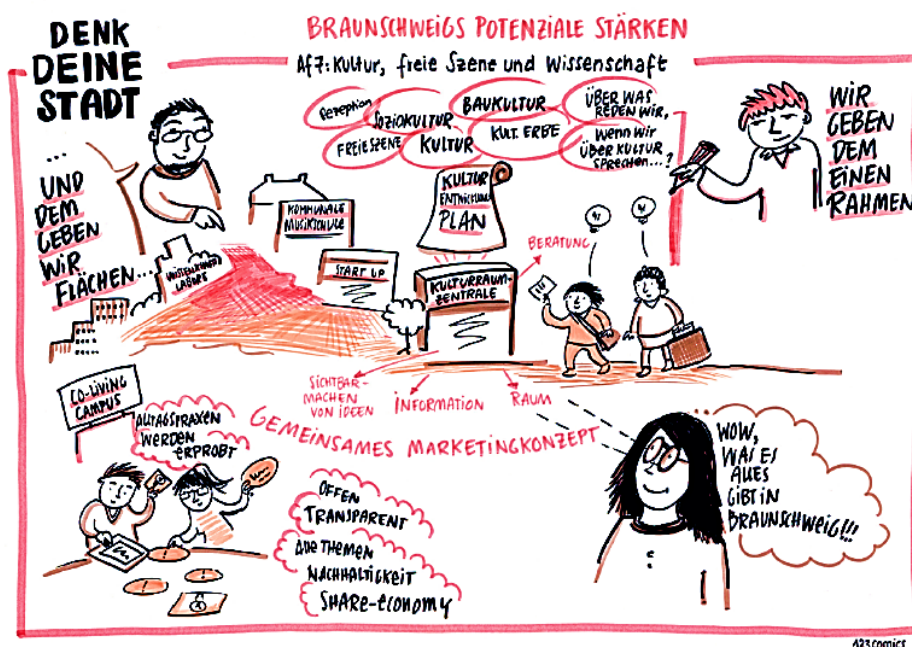 DENK
DEINE
STADT
BRAUNSCHWEIGS POTENZIALE STÄRKEN
Af7: Kultur, freie Szene und Wissenschaft
Rezeption
SOZIOKULTUR
BAUKULTUR
ÜBER WAS
REDEN WIR,
FREIE SZENE
KULTUR
KULT. ERBE
Wenn wir
ÜBER KULTUR
SPRECHEN...?
WIR
GEBEN
DEM
EINEN
RAHMEN
...
UND
DEM
GEBEN
WIR
FLÄCHEN...
KOMMUNALE
MUSIKSCHULE
KULTUR
ENTWICKLUNGS
PLAN
START UP
KULTURRAUM-
ZENTRALE
BERATUNG
SICHTBAR-
MACHEN
VON IDEEN
INFORMATION
RAUM
GEMEINSAMES MARKETINGKONZEPT
CO-LIVING
CAMPUS
ALLTAGSPRAXEN
WERDEN
ERPROBT
OFFEN
TRANSPARENT
ALLE THEMEN
NACHHALTIGKEIT
SHARE-economy
WOW,
WAS ES
ALLES
GIBT IN
BRAUNSCHWEIG!!!
123comics